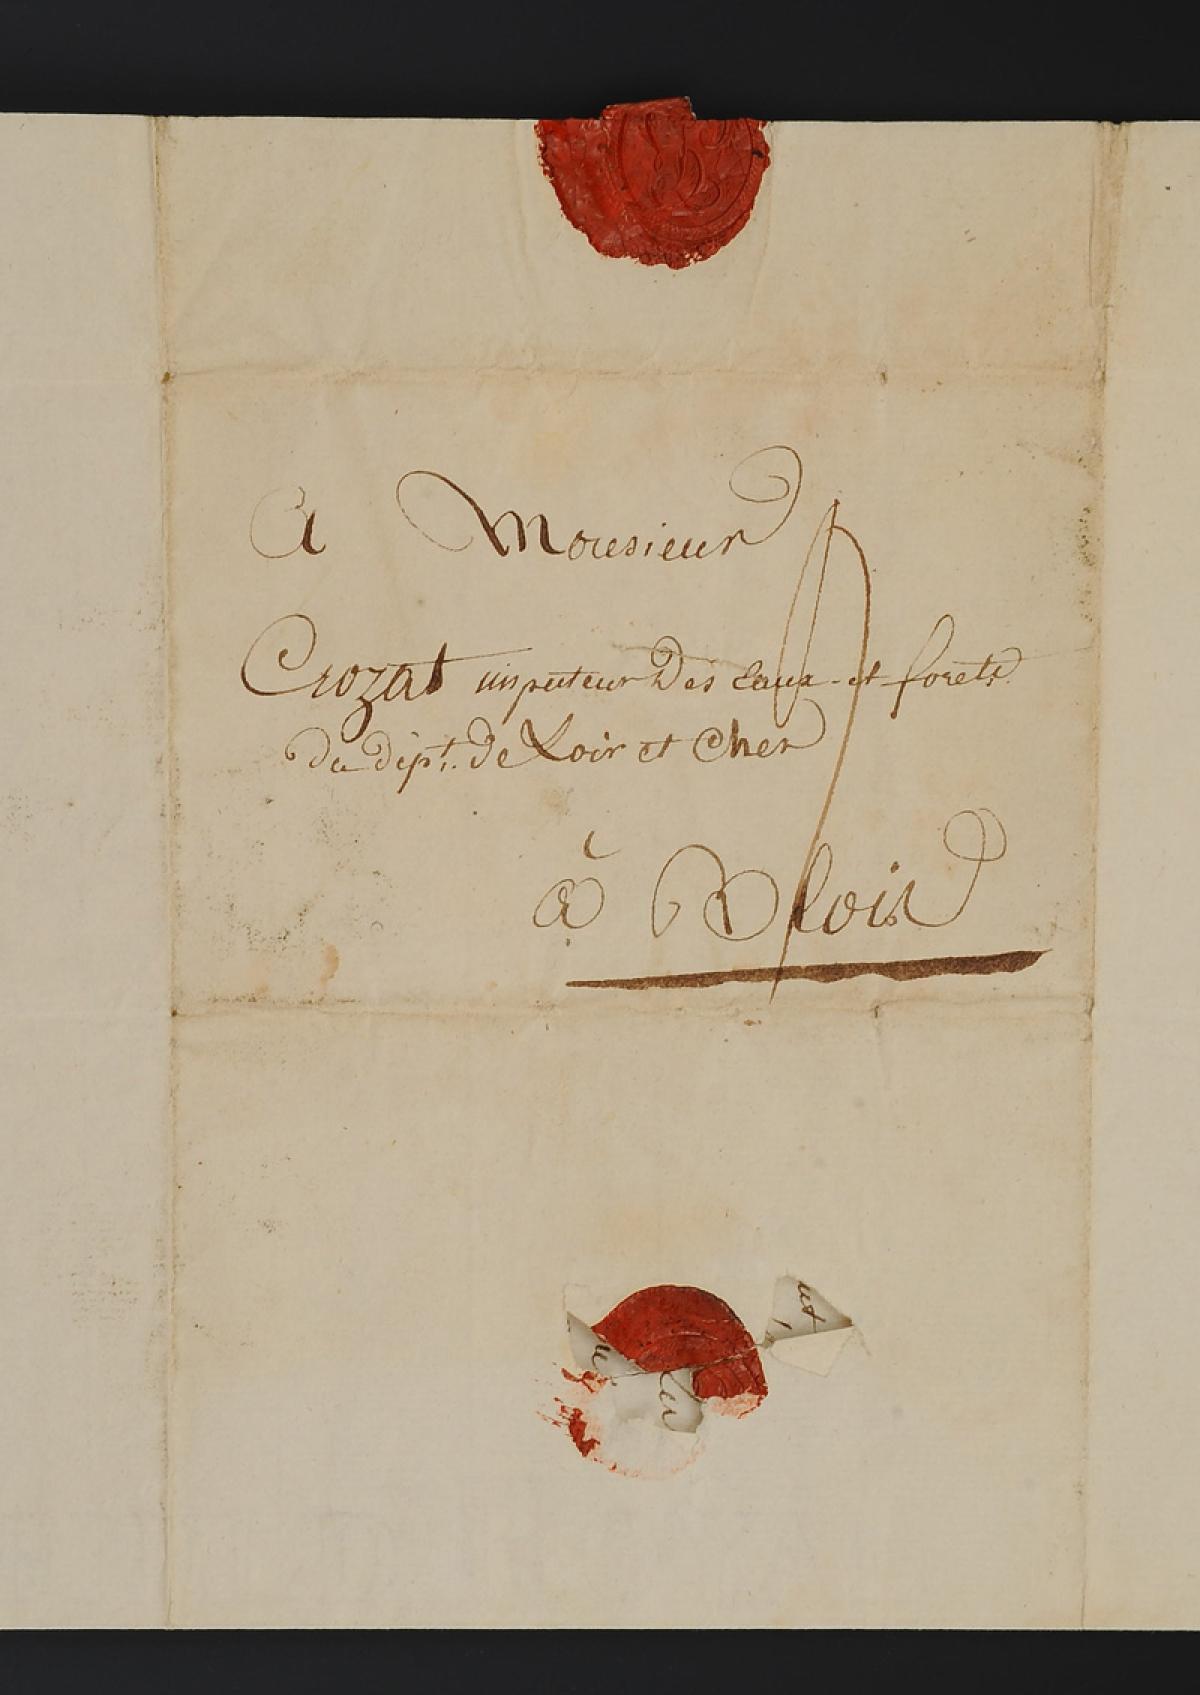 A Monsieur
Crozat inspecteur Des Eaux et forets
Du dépt. De Loir et Cher
à Blois